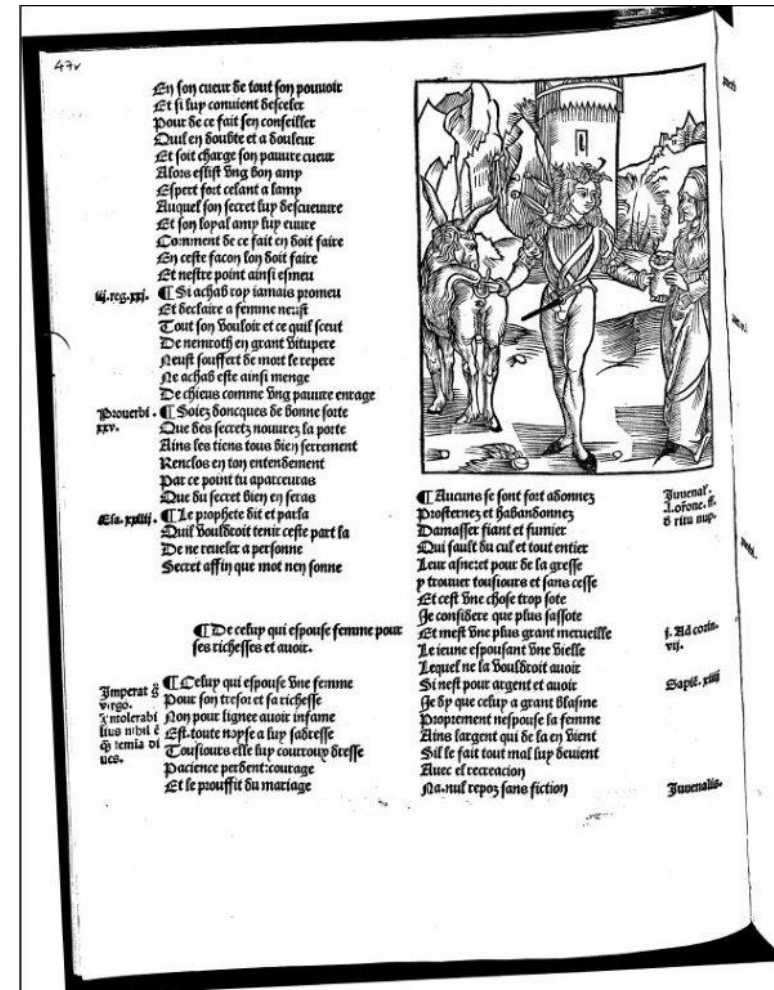 47v
En son cueur de tout son pouuoir
Et si luy conuient desceler
Pour de ce fait sen conseiller
Quil en doubte et a douleur
Et soit charge son pauure cueur
Alors eslist vng bon amy
Espert fort celant a lamy
Auquel son secret luy descueuure
Et son loyal amy luy euure
Comment de ce fait en doit faire
En ceste facon lon doit faire
Et nestre point ainsi esmeu
iij. reg. xxj.
¶ Si achab roy iamais promeu
Et declaire a femme neust
Tout son vouloir et ce quil sceut
De nemroth en grant vitupere
Neust souffert de mort le repere
Ne achab este ainsi menge
De chiens comme vng pauure enrage
Prouerbi. xxv.
¶ Soiez doncques de bonne sorte
Que des secretz nouurez la porte
Ains les tiens tous bien serrement
Renclos en ton entendement
Par ce point tu aparceuras
Que du secret bien en seras
Esa. xxiiij.
¶ Le prophete dit et parla
Quil vouldroit tenir ceste part la
De ne reueler a personne
Secret affin que mot nen sonne
¶ De celuy qui espouse femme pour
ses richesses et auoir.
Imperat q̄
virgo.
Intolerabi
lius nihil ē
q̄ femia di
ues.
¶ Celuy qui espouse vne femme
Pour son tresor et sa richesse
Non pour lignee auoir infame
Est. toute noyse a luy sadresse
Tousiours elle luy courroux dresse
Pacience perdent: courage
Et le prouffit du mariage
¶ Aucuns se sont fort adonnez
Prosternez et habandonnez
Damasser fiant et fumier
Qui sault du cul et tout entier
Leur asne: et pour de la gresse
y trouuer tousiours et sans cesse
Et cest vne chose trop sote
Je considere que plus sassote
Et mest vne plus grant merueille
Le ieune espousant vne vielle
Lequel ne la vouldroit auoir
Si nest pour argent et auoir
Je dy que celuy a grant blasme
Proprement nespouse la femme
Ains largent qui de la en vient
Sil le fait tout mal luy deuient
Auec el recreacion
Na. nul repoz sans fiction
Juuenal.
l. orone. ff.
d ritu nup.
j. Ad corin.
vij.
Sapiē. xiiij
Juuenalis.